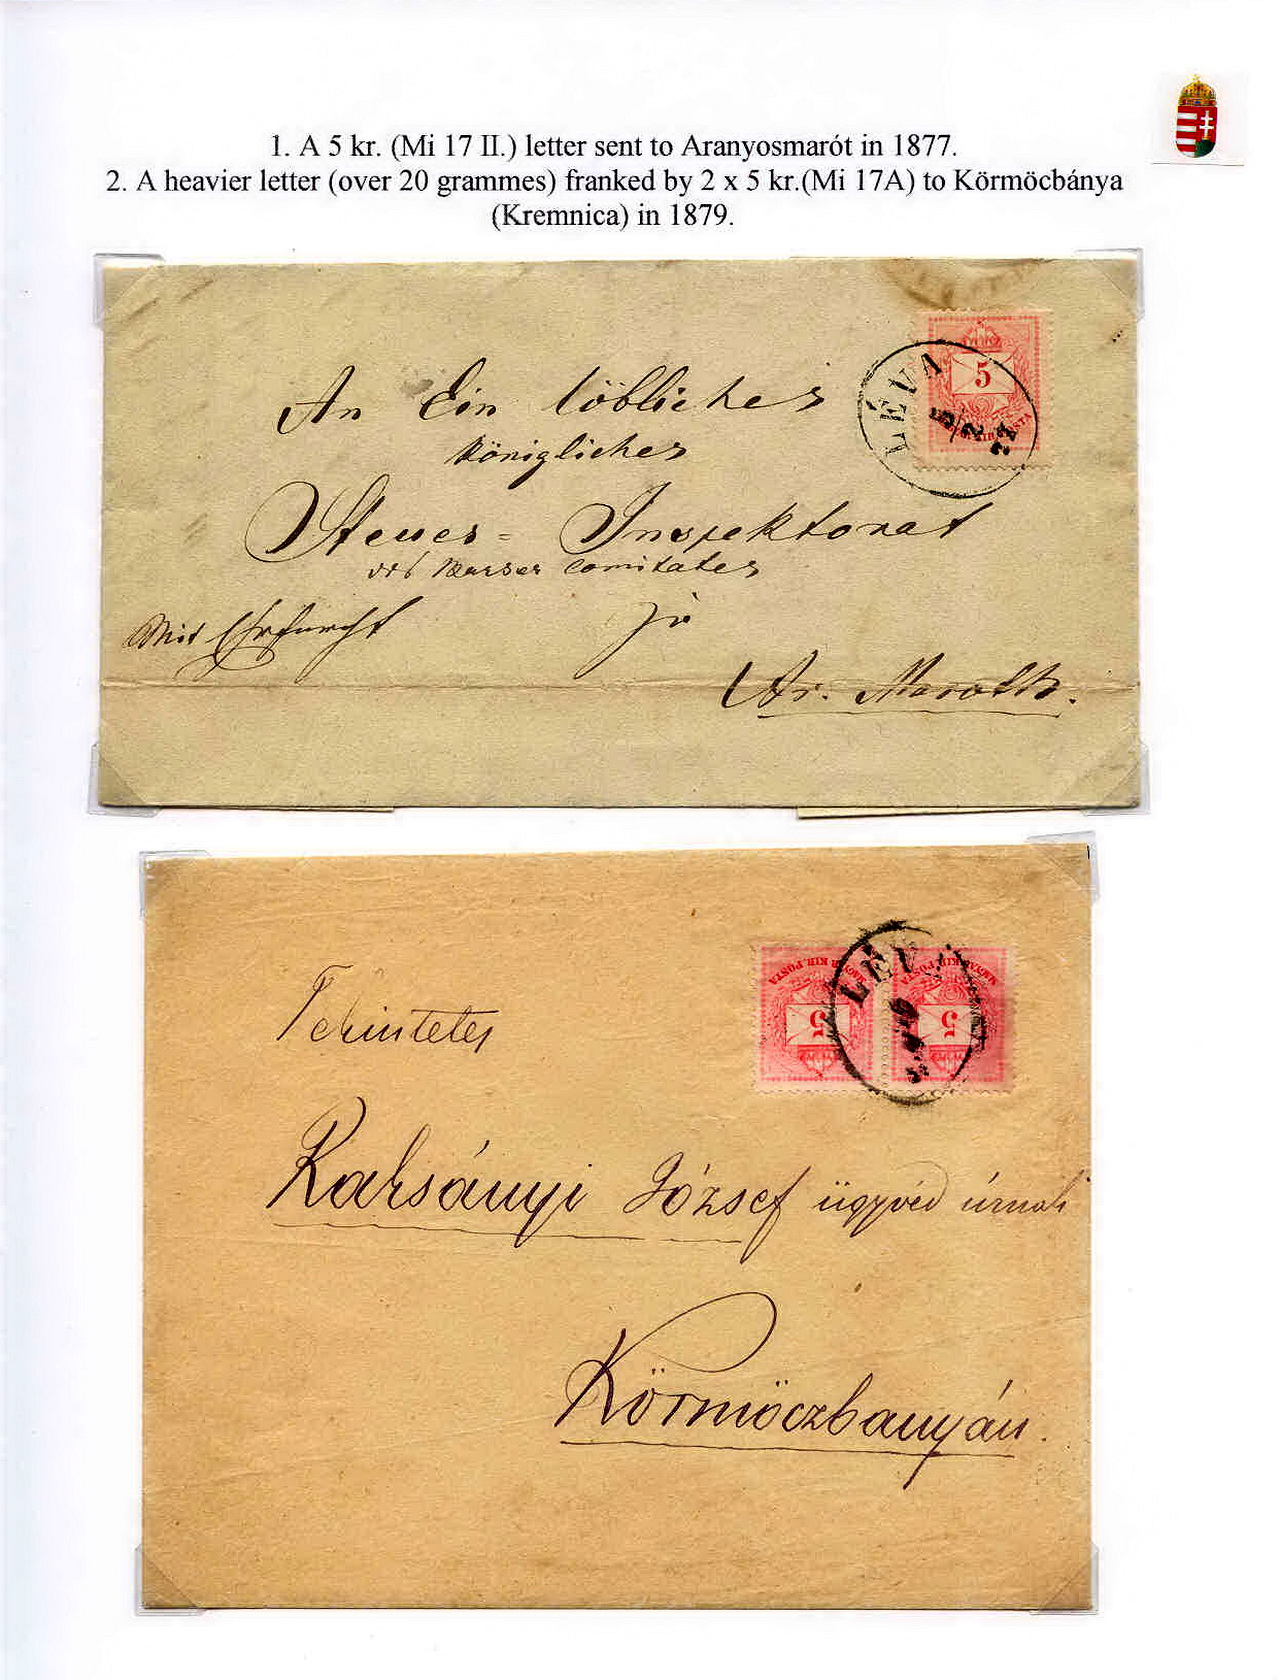 1. A 5 kr. (Mi 17 II.) letter sent to Aranyosmarót in 1877.
2. A heavier letter (over 20 grammes) franked by 2 x 5 kr.(Mi 17A) to Körmöcbánya
(Kremnica) in 1879.
5
LÉVA
An Ein löbliches
Königliches
Steuer- Inspektorat
Barser Comitates
Mit Ehrfurcht
Ar. Maroth.
MAGYAR KIR. POSTA
5
MAGYAR KIR. POSTA
5
LÉVA
Tekintetes
Karsányi József ügyvéd úrnak
Körmöczbanyán.